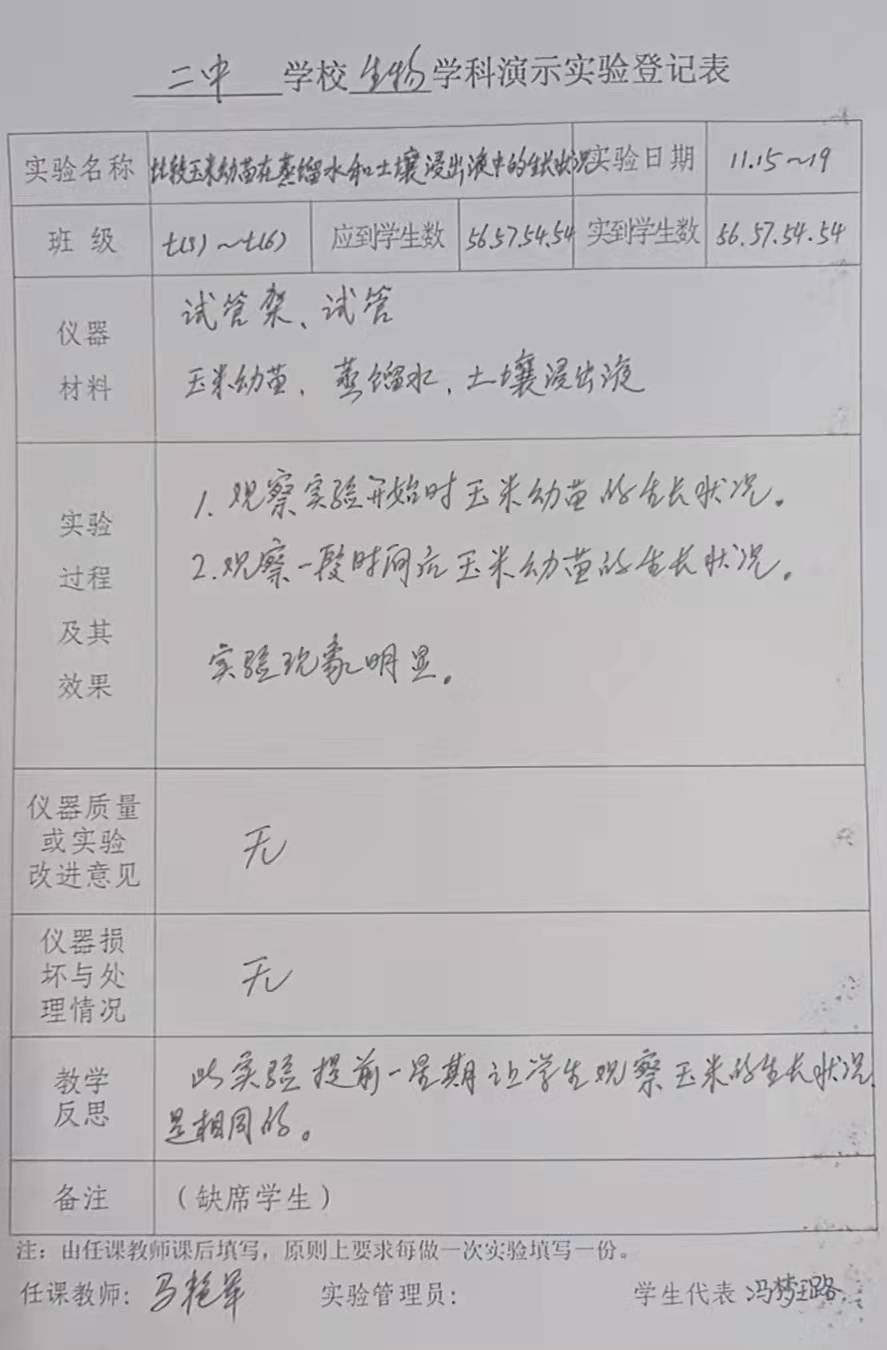 二中 学校 生物 学科演示实验登记表
实验名称 比较玉米幼苗在蒸馏水和土壤浸出液中的生长状况 实验日期 11.15~19
班 级 七(3)~七(6) 应到学生数 56.57.54.54 实到学生数 56.57.54.54
仪器
材料
试管架、试管
玉米幼苗、蒸馏水、土壤浸出液
实验
过程
及其
效果
1.观察实验开始时玉米幼苗的生长状况。
2.观察一段时间后玉米幼苗的生长状况。
实验现象明显。
仪器质量
或实验
改进意见
无
仪器损
坏与处
理情况
无
教学
反思
此实验提前一星期让学生观察玉米的生长状况
是相同的。
备注 (缺席学生)
注:由任课教师课后填写,原则上要求每做一次实验填写一份。
任课教师:马艳军 实验管理员: 学生代表 冯梦璐